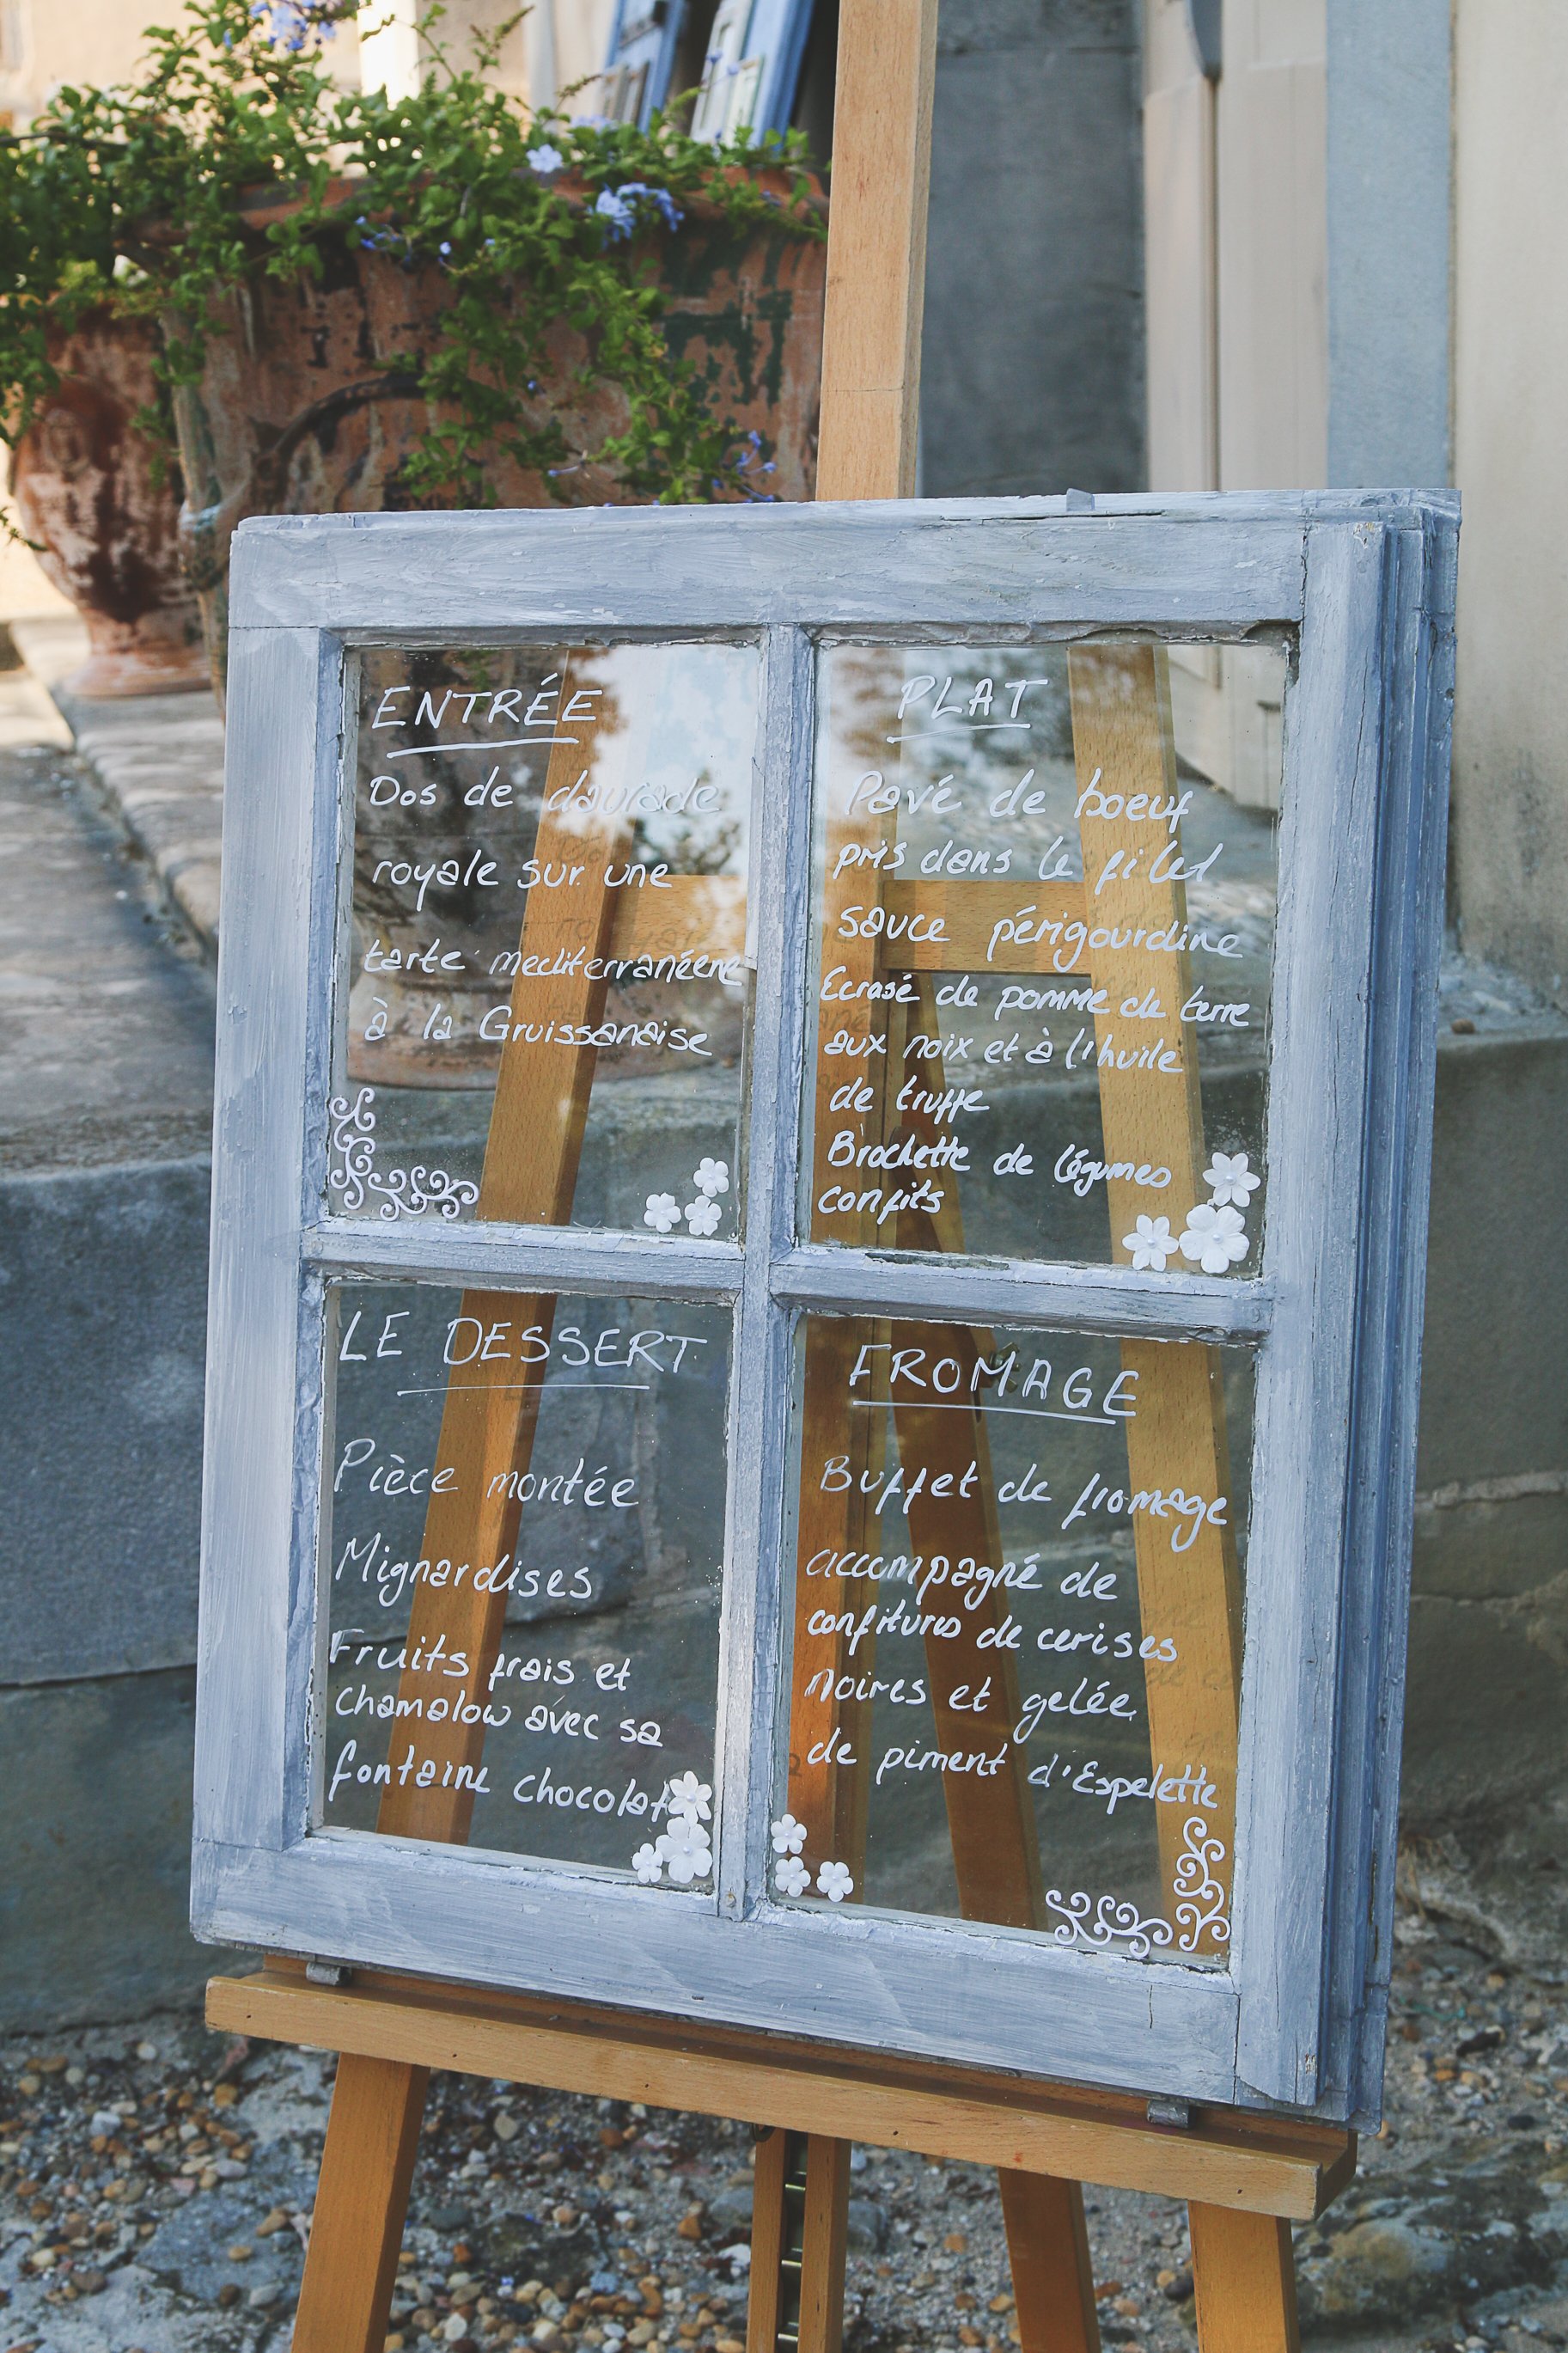 ENTRÉE
Dos de daurade
royale sur une
tarte mediterranéene
à la Gruissanaise
PLAT
Pavé de boeuf
pris dans le filet
sauce périgourdine
Ecrasé de pomme de terre
aux noix et à l'huile
de truffe
Brochette de légumes
confits
LE DESSERT
Pièce montée
Mignardises
Fruits frais et
chamalow avec sa
fontaine chocolat
FROMAGE
Buffet de fromage
accompagné de
confitures de cerises
noires et gelée
de piment d'Espelette